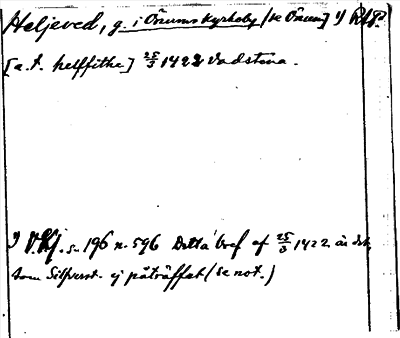 Heljeved, g. i Örums kyrkoby (se Örum) 1)
[a. t. helffithe] 25/3 1422 Vadstena.
1) VKj. s. 196 n. 596 Detta bref af 25/3 1422 är det,
som Silfverst. ej påträffat (se not.)